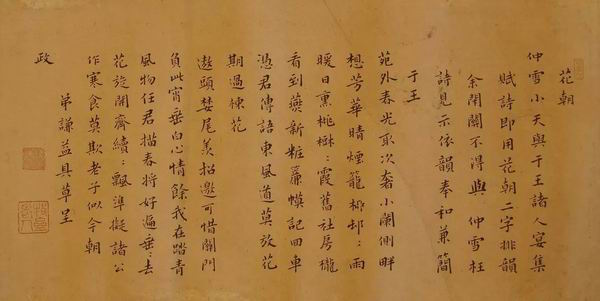 花朝
仲雪小天與于王諸人宴集
賦詩即用花朝二字排韻
余閉關不得與仲雪枉
詩見示依韻奉和兼簡
于王
苑外春光取次奢小闌側畔
想芳華晴煙籠柳邨〻雨
暖日熏桃樹〻霞舊社房櫳
看到燕新粧簾幙記回車
憑君傳語東風道莫放花
期過楝花
遨頭婪尾美招邀可惜關門
負此宵垂白心情餘我在踏青
風物任君描春將好遍垂〻去
花旋開齊續〻飄準擬諸公
作寒食莫欺老子似今朝
弟謙益具草呈
政